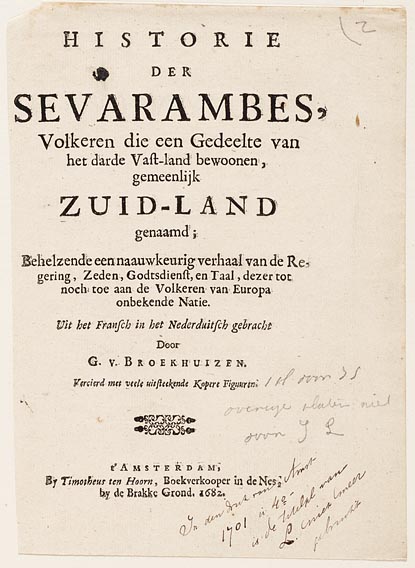 2
HISTORIE
DER
SEVARAMBES,
Volkeren die een Gedeelte van
het darde Vaſt-land bewoonen,
gemeenlijk
ZUID-LAND
genaamd;
Behelzende een naauwkeurig verhaal van de Re-
gering, Zeden, Godtsdienſt, en Taal, dezer tot
noch toe aan de Volkeren van Europa
onbekende Natie.
Uit het Franſch in het Nederduitſch gebracht
Door
G. v. BROEKHUIZEN.
Verciert met veele uitſteekende Kopere Figuuren.
overige platen niet
voor J L
t'AMSTERDAM,
By Timotheus ten Hoorn, Boekverkooper in de Nes,
by de Brakke Grond. 1682.
In den druk van Amst
1701 in 4º
is de titelpl van
L. niet meer
gebruikt